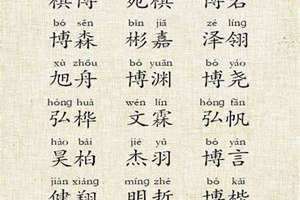 棋博 宛棋 博名
bó sēn bīn jiā zé líng
博森 彬嘉 泽翎
xù zhōu bó yuān bó yáo
旭舟 博渊 博尧
hóng huà wén lín hóng fān
弘桦 文霖 弘帆
hào bǎi jié yǔ bó yán
昊柏 杰羽 博言
jiàn xiáng míng zhé bó kǎi
健翔 明哲 博楷